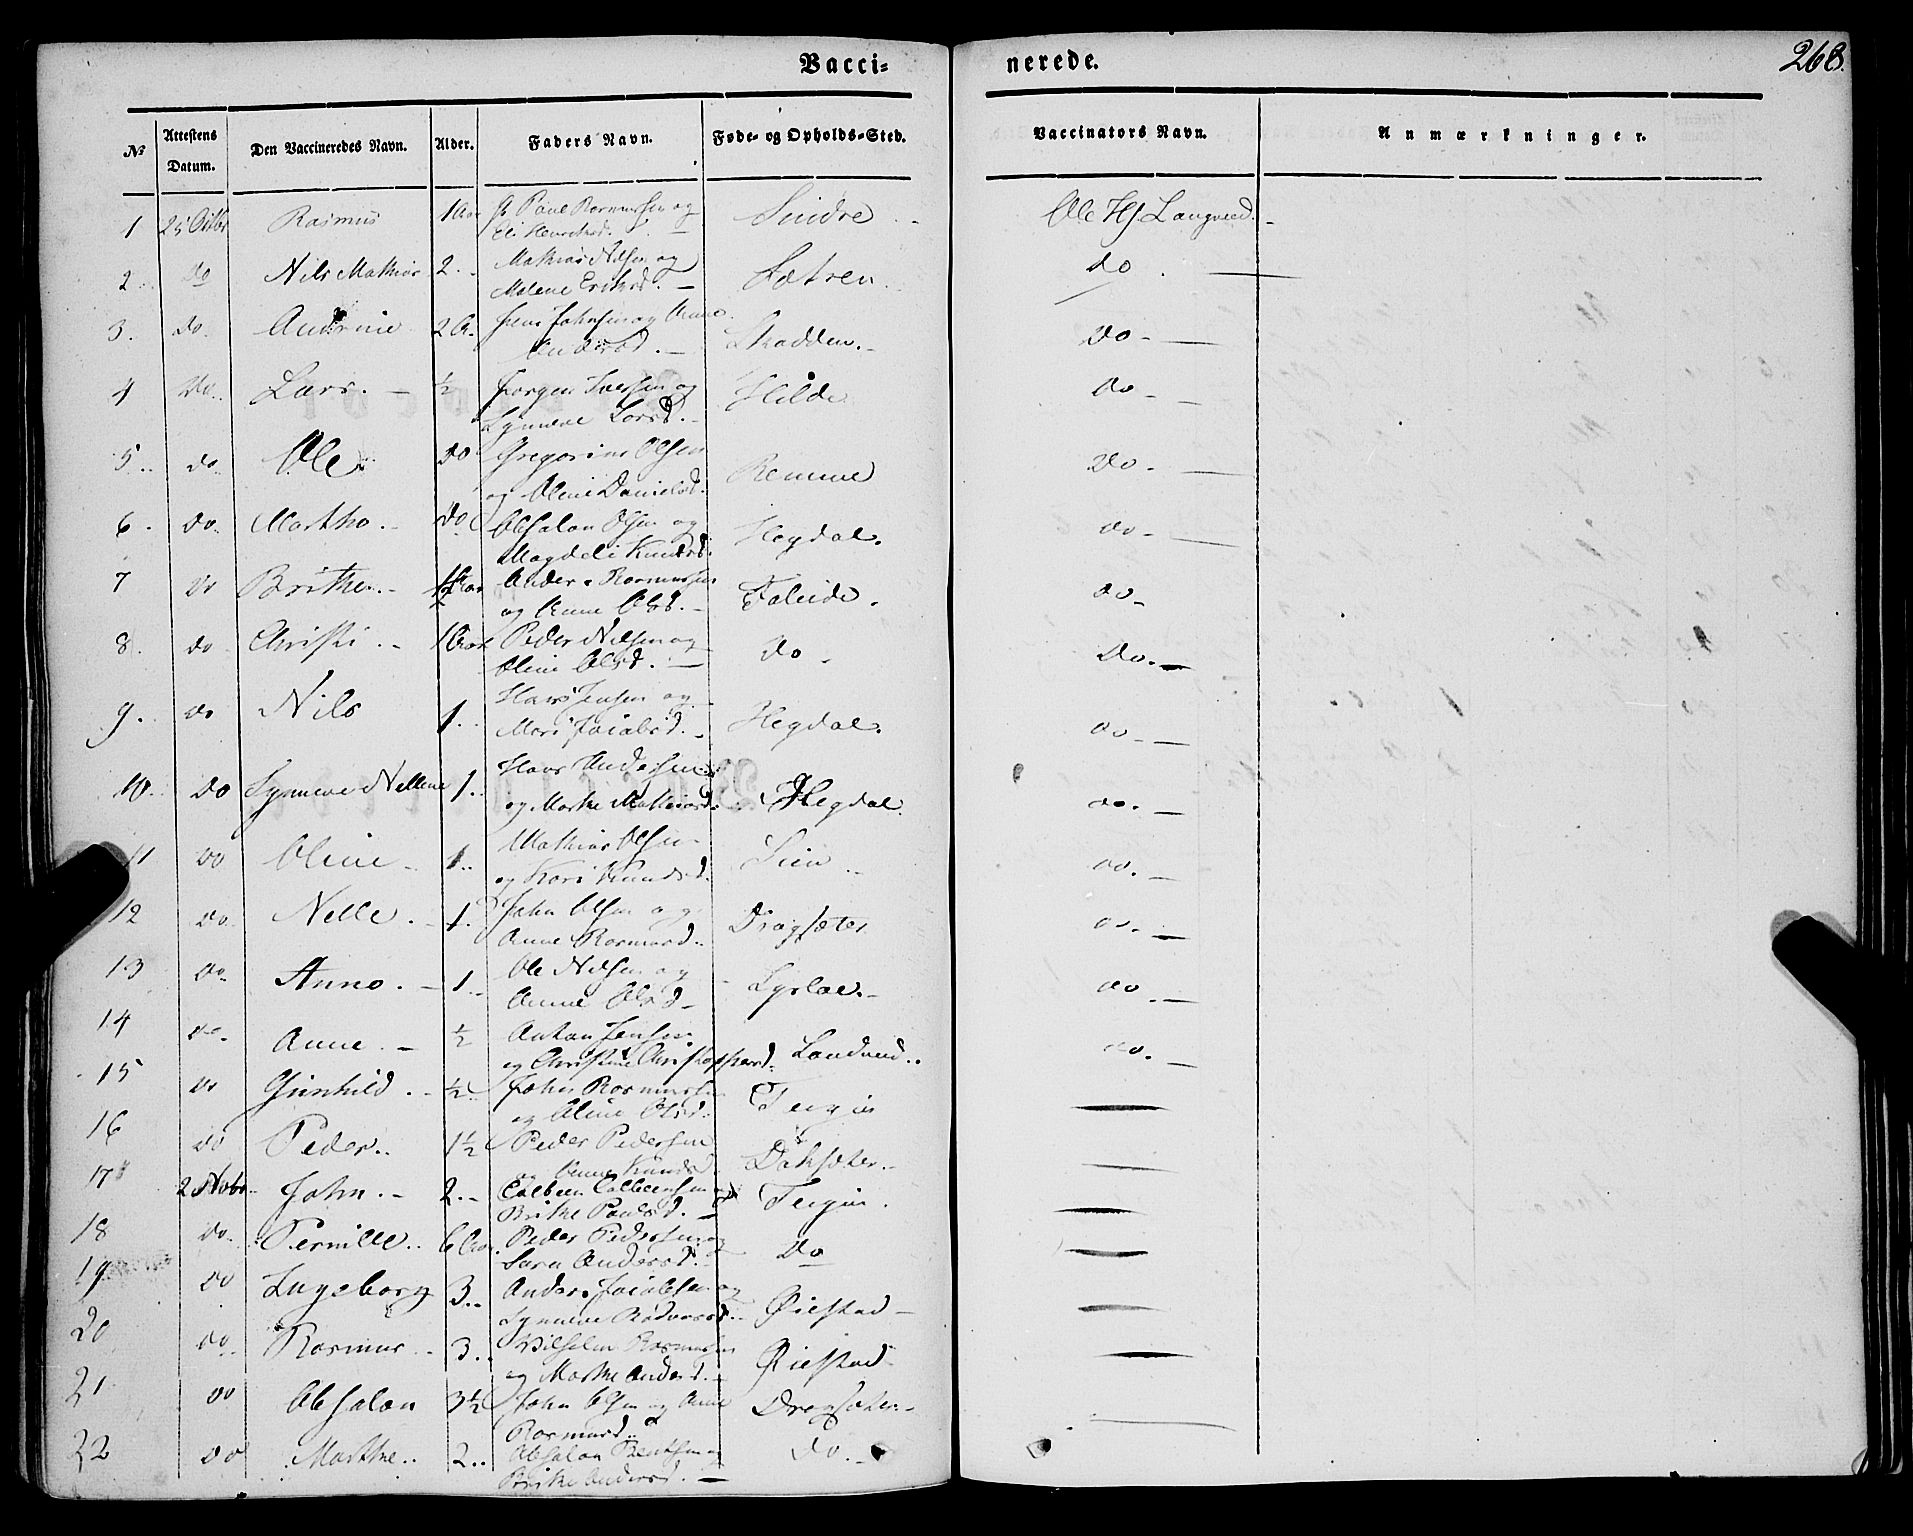 Vacci- nerede. 268.
No Attestens Datum. Den Vaccineredes Navn. Alder. Faders Navn. Føde- og Opholds-Sted. Vaccinators Navn. Anmærkninger.
1 25 Octbr Rasmus 1 Aar Paul Rasmussen og Sindre Ole Hj. Langved.
2 do Nils Mathias 2 Mathias Nilsen og Sætren do
Malene
3. do. Andrine 2 A. Jens Johnsen og Anne Skadden. do
Andersd.
4 do. Lars. ½ Jørgen Iversen og Hilde do
Synneve Larsd.
5 do Ole do Gregorius Olsen Remme do
og Oline Danielsd.
6. do. Martha. do Absalon Olsen og Hegdal. do
Magdeli Knudsd.
7 do Brithe. Anders Rasmussen Faleide. do
og Anne Olsd.
8. do Christi. 1 Aar Peder Nilsen og do do.
Oline Olsd.
9. do Nils 1. Hans Jensen og Hegdal. do
Mari Jacobsd.
10. do Synneve Nelline 1. Hans Andersen Hegdal. do.
og Marthe Mathiasd.
11 do Oline 1. Mathias Olsen do.
og Kari Knudsd.
12 do. Nelle. 1. John Olsen og Dragsæter do.
Anne Rasmusd.
13 do. Anna. 1 Ole Nilsen og do.
Anne Olsd
14 do. Anne. ½ Anton Jensen Landveed.. do.
og Christine Christophersd.
15 do Gunhild. ½ John Rasmussen
og Oline Olsd.
16 do Peder.. 1½ Peder Pedersen
og Anne Knudsd.
17 2 Novbr John. 2. Colbeen Colbeensen og
Brithe Paulsd.
18 do. Pernille.. 6 Aar. Peder Pedersen og do
Sara Andersd.
19 do Ingeborg 3.. Anders Jacobsen og Øiestad
Synneve
20 do. Rasmus 3.. Vilhelm Rasmussen Øiestad
og Marthe Andersd.
21 do Absalon 3½ John Olsen og Anne Dragsæter.
Rasmusd.
22 do Marthe.. 2.. Absalon Bentsen og do.
Brithe Andersd.